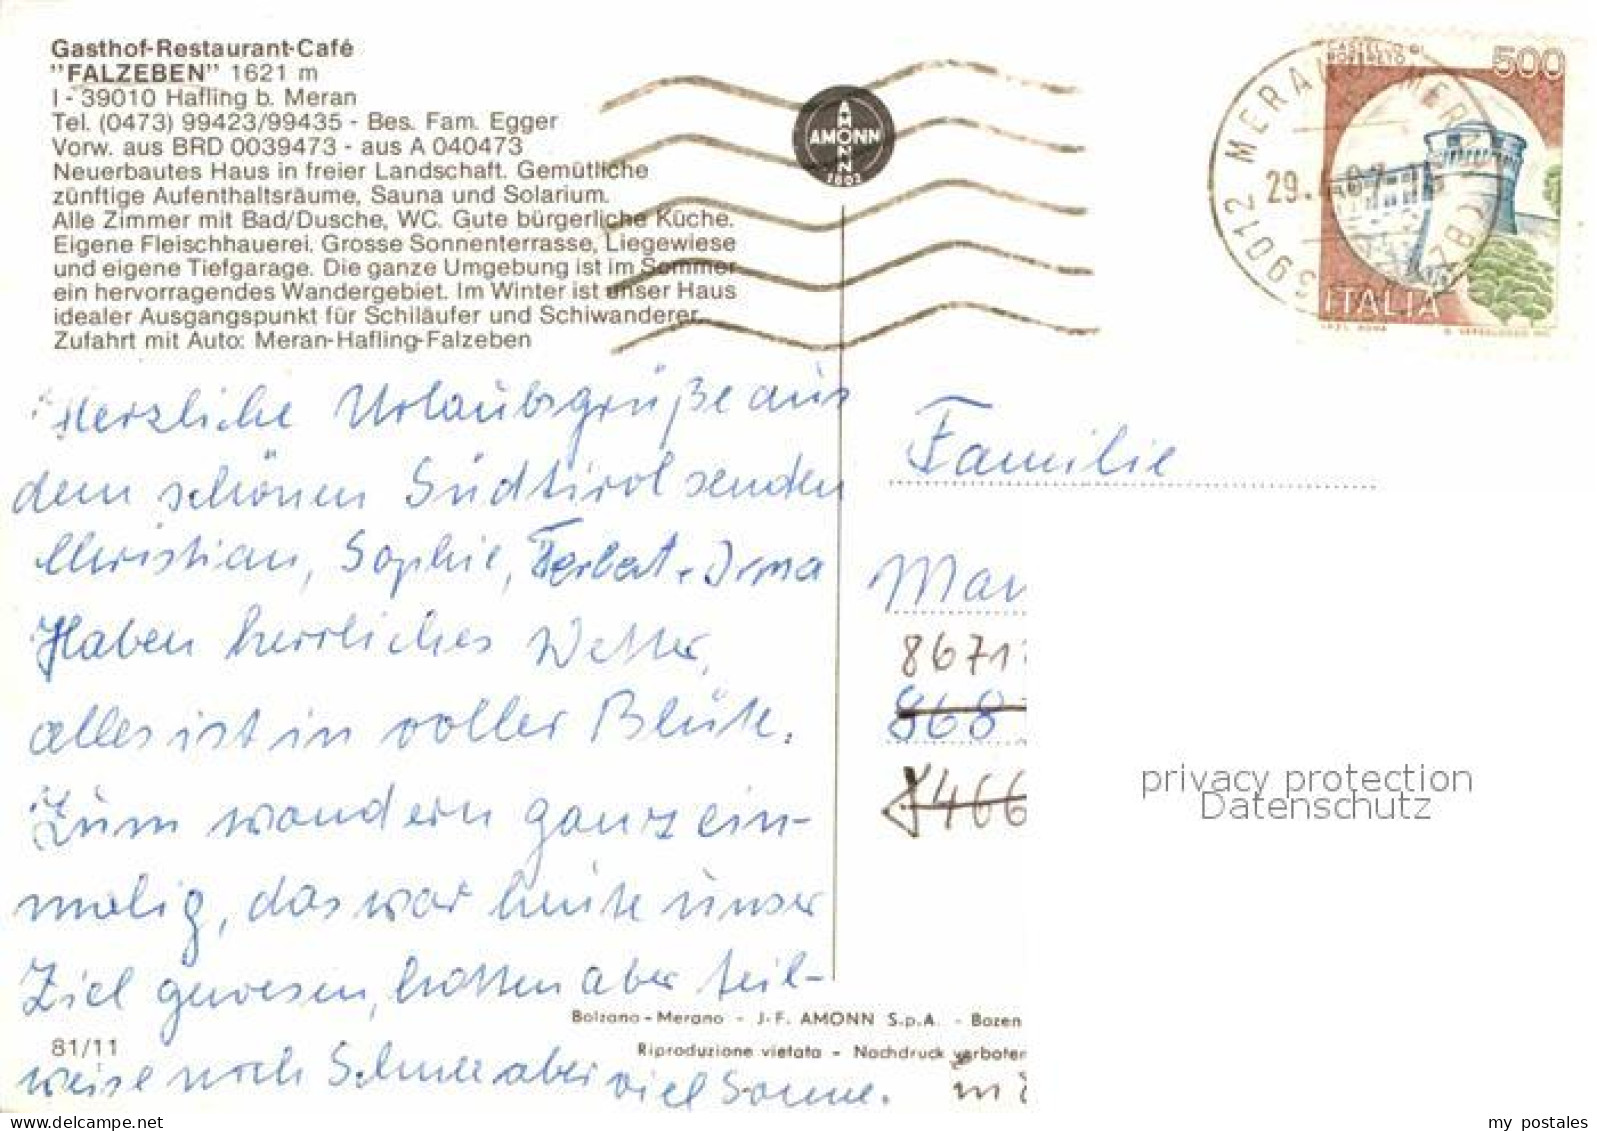 Gasthof-Restaurant-Café
"FALZEBEN" 1621 m
I - 39010 Hafling b. Meran
Tel. (0473) 99423/99435 - Bes. Fam. Egger
Vorw. aus BRD 0039473 - aus A 040473
Neuerbautes Haus in freier Landschaft. Gemütliche
zünftige Aufenthaltsräume, Sauna und Solarium.
Alle Zimmer mit Bad/Dusche, WC. Gute bürgerliche Küche.
Eigene Fleischhauerei. Grosse Sonnenterrasse, Liegewiese
und eigene Tiefgarage. Die ganze Umgebung ist im Sommer
ein hervorragendes Wandergebiet. Im Winter ist unser Haus
idealer Ausgangspunkt für Schiläufer und Schiwanderer.
Zufahrt mit Auto: Meran-Hafling-Falzeben
AMONN
1802
500
ITALIA
39012 MERANO
29.
Herzliche Urlaubsgrüße aus
dem schönen Südtirol senden
Christian, Sophie, Irma
Haben herrliches Wetter,
alles ist in voller Blüte.
Zum wandern ganz ein-
malig, das war heute unser
Ziel gewesen, hatten aber teil-
weise noch Schnee aber viel Sonne.
Familie
Mar
8671
868
8466
privacy protection
Datenschutz
Bolzano-Merano - J.F. AMONN S.p.A. - Bozen
81/11
Riproduzione vietata - Nachdruck verboten
my postales